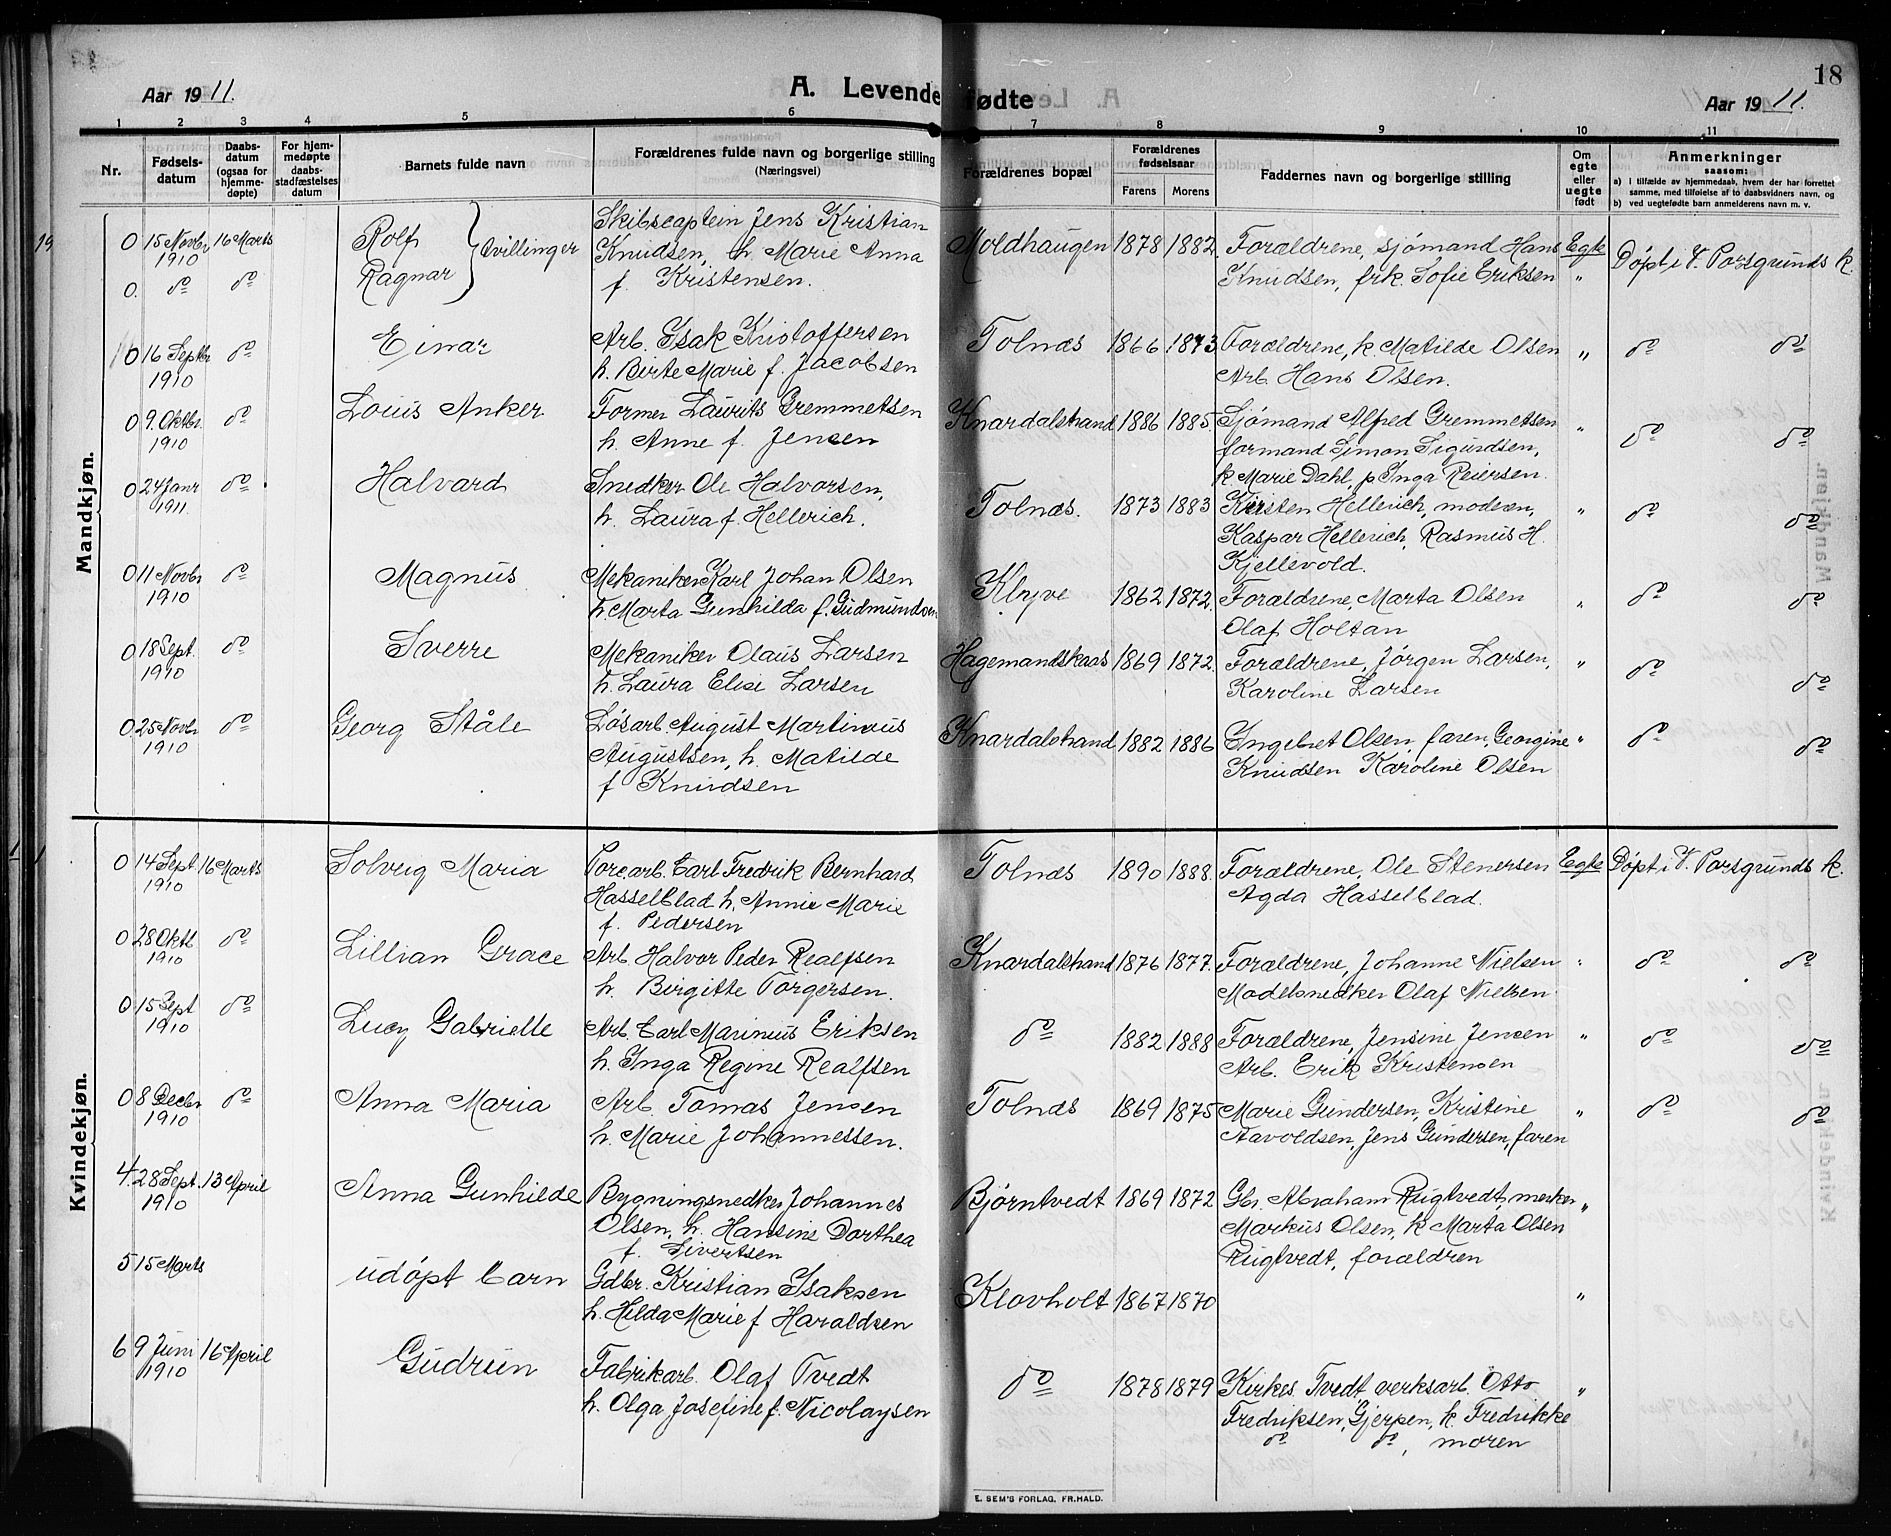 18
Aar 1911.
A. Levende fødte
Aar 1911.
1 2 3 4 5 6 7 8 9 10 11
Nr.
Fødsels-
datum
Daabs-
datum
(ogsaa for
hjemme-
døpte)
For hjem-
medøpte
daabs-
stadfæstelses
datum
Barnets fulde navn
Forældrenes fulde navn og borgerlige stilling
(Næringsvei)
Forældrenes bopæl
Forældrenes
fødselsaar
Farens Morens
Faddernes navn og borgerlige stilling
Om
egte
eller
uegte
født
Anmerkninger
saasom:
a) I tilfælde av hjemmedaab, hvem der har forrettet
samme, med tilføielse af to daabsvidners navn, og
b) ved uegtefødte barn anmelderens navn m. v.
Mandkjøn.
0 15 Novbr 16 Marts Rolf } tvillinger Skibscaptein Jens Kristian Moldhaugen 1878 1882 Forældrene, sjómand Hans Egte Døpt i V. Porsgrunds k.
1910 Knudsen, h. Marie Anna Knudsen, frk. Sofie Eriksen "
0. do do Ragnar f. Kristensen.
0 16 Septbr do Einar Arb. Isak Kristoffersen Tolnæs 1866 1873 Forældrene, k. Matilde Olsen " do do
1910 h. Birte Marie f. Jacobsen Arb. Hans Olsen.
0 9. Oktbr. do Louis Anker Former Laurits Gremmetsen Knardalstrand 1886 1885. Sjómand Alfred Gremmetsen " do do
1910 h. Anne f. Jensen formand Simon Sigurdsen,
k Marie Dahl, p Inga Reiersen.
0 24 Janr do Halvard Snedker Ole Halvorsen, Tolnæs. 1873 1883 Kirsten Hellerich, moderen, " do do
1911. h. Laura f. Hellerich. Kaspar Hellerich, Rasmus H.
Kjellevold.
0 11 Novbr do Magnus Mekaniker Karl Johan Olsen Klyve 1862 1872. Forældrene, Marta Olsen " do do
1910 h. Marta Gunhilda f. Gudmundsen Olaf Holtan
0 18 Sept. do Sverre Mekaniker Olaus Larsen Hagemandskaas 1869 1872. Forældrene, Jørgen Larsen, " do do
1910 h. Laura Elise Larsen Karoline Larsen
0. 25 Novbr do Georg Ståle Løsarb. August Martinius Knardalstrand 1882 1886 Ingebret Olsen, faren, Georgine " do do
1910 Augustsen, h. Matilde Knudsen Karoline Olsen
f Knudsen
Kvindekjøn.
0 14 Sept. 16 Marts Solveig Maria Porc.arb. Carl Fredrik Bernhard Tolnæs 1890 1888. Forældrene, Ole Stenersen Egte Døpt i V. Porsgrunds k.
1910 Hasselblad h. Annie Marie Agda Hasselblad.
f. Pedersen
0 28 Oktb. do Lillian Grace Arb. Halvor Peder Realfsen Knardalstrand 1876 1877. Forældrene, Johanne Nielsen " do do
1910 h. Birgitte Torgersen. Modelsnedker Olaf Nielsen
0 15 Sept do Lucy Gabrielle Arb. Carl Marinius Eriksen do 1882 1888 Forældrene, Jensine Jensen " do do
1910 h. Inga Regine Realfsen Arb. Erik Kristensen
0 8 Decbr do Anna Maria Arb. Tomas Jensen Tolnæs 1869 1875 Marie Gundersen, Kristine " do do
1910 h. Marie Johannessen. Aavoldsen, Jens Gundersen, faren
4. 28 Sept. 13 April Anna Gunhilde Bygningsnedker Johannes Bjørntvedt 1869 1872 Gbr. Abraham Rugtvedt, "
1910 Olsen, h. Hansine Dorthea Markus Olsen, k Marta Olsen
f. Sivertsen Rugtvedt, forældren
5 15 Marts udøpt barn Gdbr. Kristian Isaksen Klovholt 1867 1870 "
h. Hilda Marie f Haraldsen
6 9 Juni 16 April Gudrun Fabrikarb. Olaf Tvedt do 1878 1879 Kirkes. Tvedt verksarb. Otto "
1910 h. Olga Josefine f. Nicolaysen Fredriksen, Gjerpen, k. Fredrikke
do do, moren
E. SEM'S FORLAG, FR.HALD.